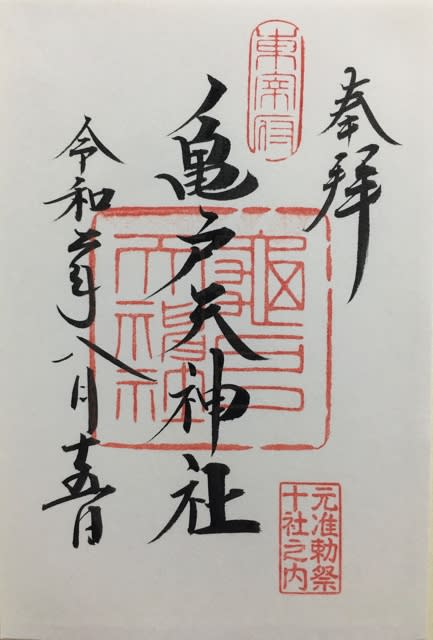 奉拝
東宰府
亀戸天神社
令和年八月十五日
元准勅祭
十社之内